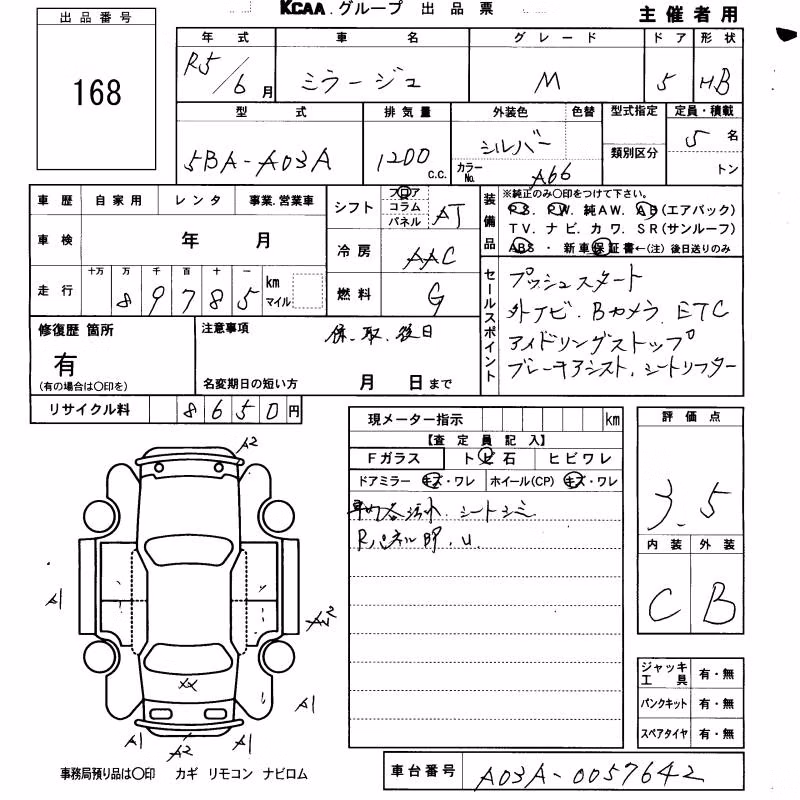 KCAA.グループ 出品票
主催者用
出品番号
168
年式 車名 グレード ドア 形状
R5/6月 ミラージュ M 5 HB
型式 排気量 外装色 色替 型式指定 定員・積載
5BA-A03A 1200 c.c. シルバー 類別区分 5名
カラーNo. A66 トン
車歴 自家用 レンタ 事業.営業車
車検 年 月
走行 十万 万 千 百 十 一
89785 km マイル
シフト フロア コラム パネル AT
冷房 AAC
燃料 G
装備品
※純正のみ○印をつけて下さい。
PS. PW. 純AW. AB(エアバック)
TV. ナビ. カワ. SR(サンルーフ)
ABS ・ 新車保証書←(注) 後日送りのみ
セールスポイント
プッシュスタート
外ナビ. Bカメラ. ETC
アイドリングストップ
ブレーキアシスト. シートリフター
修復歴 箇所
有
(有の場合は○印を)
注意事項 保.取.後日
名変期日の短い方 月 日まで
リサイクル料 8650円
現メーター指示 km
【査定員記入】
Fガラス トビ石 ヒビワレ
ドアミラー キズ・ワレ ホイール(CP) キズ・ワレ
シートシミ
Rパネル凹. U.
評価点
3.5
内装 外装
C B
A2
A1
A2
XX
A1
A1
A2
ジャッキ 工具 有・無
パンクキット 有・無
スペアタイヤ 有・無
事務局預り品は○印 カギ リモコン ナビロム
車台番号 A03A-0057642